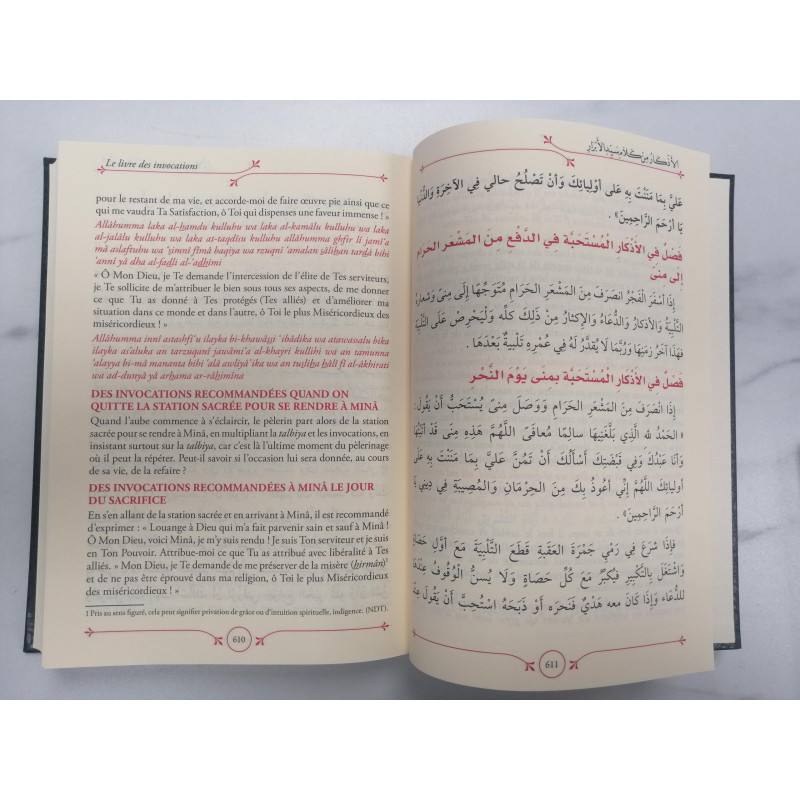 Le livre des invocations
pour le restant de ma vie, et accorde-moi de faire œuvre pie ainsi que ce
qui me vaudra Ta Satisfaction, ô Toi qui dispenses une faveur immense ! »
Allâhumma laka al-ḥamdu kulluhu wa laka al-kamâlu kulluhu wa laka
al-jalâlu kulluhu wa laka at-taqdîsu kulluhu allâhumma ghfir lî jamî‘a
mâ aslaftuhu wa ‘ṣimnî fîmâ baqiya wa rzuqnî ‘amalan ṣâliḥan tarḍâ bihi
‘annî yâ dha al-faḍli al-‘aḍhîmi
« Ô Mon Dieu, je Te demande l'intercession de l'élite de Tes serviteurs,
je Te sollicite de m'attribuer le bien sous tous ses aspects, de me donner
ce que Tu as donné à Tes protégés (Tes alliés) et d'améliorer ma
situation dans ce monde et dans l'autre, ô Toi le plus Miséricordieux des
miséricordieux ! »
Allâhumma innî astashfi‘u ilayka bi-khawâṣṣi ‘ibâdika wa atawasalu bika
ilayka as'aluka an tarzuqanî jawâmi‘a al-khayri kullihi wa an tamunna
‘alayya bi-mâ mananta bihi ‘alâ awliyâ'ika wa an tuṣliḥa ḥâlî fî al-âkhirati
wa ad-dunyâ yâ arḥama ar-râḥimîna
DES INVOCATIONS RECOMMANDÉES QUAND ON
QUITTE LA STATION SACRÉE POUR SE RENDRE À MINÂ
Quand l'aube commence à s'éclaircir, le pèlerin part alors de la station
sacrée pour se rendre à Minâ, en multipliant la talbiya et les invocations, en
insistant surtout sur la talbiya, car c'est l'ultime moment du pèlerinage
où il peut la répéter. Peut-il savoir si l'occasion lui sera donnée, au cours
de sa vie, de la refaire ?
DES INVOCATIONS RECOMMANDÉES À MINÂ LE JOUR
DU SACRIFICE
En s'en allant de la station sacrée et en arrivant à Minâ, il est recommandé
d'exprimer : « Louange à Dieu qui m'a fait parvenir sain et sauf à Minâ !
Ô Mon Dieu, voici Minâ, je m'y suis rendu ! Je suis Ton serviteur et je suis
en Ton Pouvoir. Attribue-moi ce que Tu as attribué avec libéralité à Tes
alliés. » Mon Dieu, je Te demande de me préserver de la misère (ḥirmân)¹
et de ne pas être éprouvé dans ma religion, ô Toi le plus Miséricordieux
des miséricordieux ! »
1 Pris au sens figuré, cela peut signifier privation de grâce ou d'intuition spirituelle, indigence. (NDT).
610
الأذكار من كلام سيد الأبرار
عَلَيَّ بِمَا مَنَنْتَ بِهِ عَلى أوْلِيائِكَ وَأنْ تَصْلُحُ حالي فِي الآخِرَةِ وَالدُّنْيَا
يَا أرْحَمَ الرَّاحِمِينَ» .
فَصْلٌ في الأَذْكَارِ الْمُسْتَحَبَّةِ فِي الدَّفْعِ مِنَ المَشْعَرِ الحَرَامِ
إلى مِنىً
إذَا أسْفَرَ الْفَجْرُ انْصَرَفَ مِنَ المَشْعَرِ الحَرَامِ مُتَوَجِّهًا إلى مِنىً وَشعارُهُ
التَّلْبِيَةُ وَالأذكارُ وَالدُّعَاءُ وَالإكثارُ مِنْ ذَلِكَ كُلِّهِ وَلْيَحْرِصْ عَلى التَّلْبِيَةِ
فَهَذا آخرُ زَمَنِهَا وَرُبَّمَا لَا يُقَدَّرُ لَهُ فِي عُمْرِهِ تَلْبِيَةٌ بَعْدَهَا .
فَصْلٌ في الأَذْكَارِ الْمُسْتَحَبَّةِ بِمنَى يَوْمَ النَّحْرِ
إذَا انْصَرَفَ مِنَ المَشْعَرِ الحَرَامِ وَوَصَلَ مِنىً يُسْتَحَبُّ أَنْ يَقُولَ
«الْحَمْدُ لله الَّذِي بَلَّغَنِيهَا سالِمًا مُعافىً اللَّهُمَّ هَذِهِ مِنى قَدْ أتَيْتُهَا
وَأنَا عَبْدُكَ وَفِي قَبْضَتِكَ أسْأَلُكَ أَنْ تَمُنَّ عَلَيَّ بِمَا مَنَنْتَ بِهِ عَلى
أَوْلِيائِكَ اللَّهُمَّ إنِّي أعُوذُ بِكَ مِنَ الْحِرْمَانِ وَالْمُصِيبَةِ فِي دِينِي يَا
أرْحَمَ الرَّاحِمِينَ» .
فإذَا شَرَعَ فِي رَمْيِ جَمْرَةِ العَقَبَةِ قَطَعَ التَّلْبِيَةَ مَعَ أوَّلِ حَصَاةٍ
وَاشْتَغَلَ بِالتَّكْبِيرِ فَيُكَبِّرُ مَعَ كُلِّ حَصَاةٍ وَلَا يُسَنُّ الْوُقُوفُ عِنْدَهَا
لِلدُّعَاءِ وَإذَا كَانَ معه هَدْيٌ فَنَحَرَهُ أوْ ذَبَحَهُ اسْتُحِبَّ أَنْ يَقُولَ عِنْدَ
611